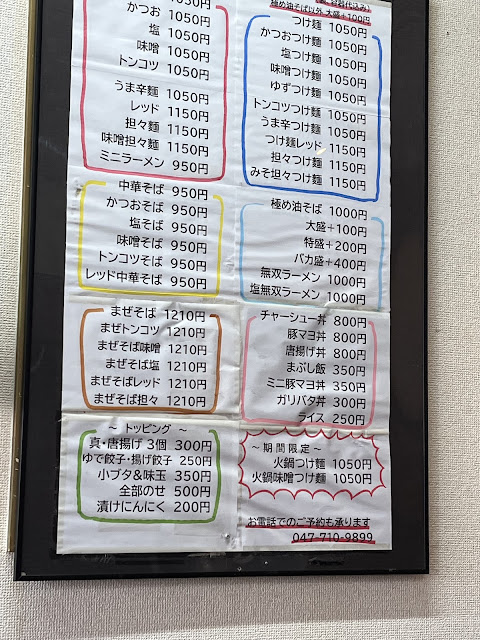 1050円
かつお 1050円
塩 1050円
味噌 1050円
トンコツ 1050円
うま辛麺 1050円
レッド 1150円
担々麺 1150円
味噌担々麺 1150円
ミニラーメン 950円
極め油そば以外 大盛+100円
つけ麺 1050円
かつおつけ麺 1050円
塩つけ麺 1050円
味噌つけ麺 1050円
ゆずつけ麺 1050円
トンコツつけ麺 1050円
うま辛つけ麺 1050円
つけ麺レッド 1150円
担々つけ麺 1150円
みそ担々つけ麺 1150円
中華そば 950円
かつおそば 950円
塩そば 950円
味噌そば 950円
トンコツそば 950円
レッド中華そば 950円
極め油そば 1000円
大盛+100円
特盛+200円
バカ盛+400円
無双ラーメン 1000円
塩無双ラーメン 1000円
まぜそば 1210円
まぜトンコツ 1210円
まぜそば味噌 1210円
まぜそば塩 1210円
まぜそばレッド 1210円
まぜそば担々 1210円
チャーシュー丼 800円
豚マヨ丼 800円
唐揚げ丼 800円
まぶし飯 350円
ミニ豚マヨ丼 350円
ガリバタ丼 300円
ライス 250円
～ トッピング ～
真・唐揚げ 3個 300円
ゆで餃子・揚げ餃子 250円
小ブタ&味玉 350円
全部のせ 500円
漬けにんにく 200円
～期間限定～
火鍋つけ麺 1050円
火鍋味噌つけ麺 1050円
お電話でのご予約も承ります
047-710-9899